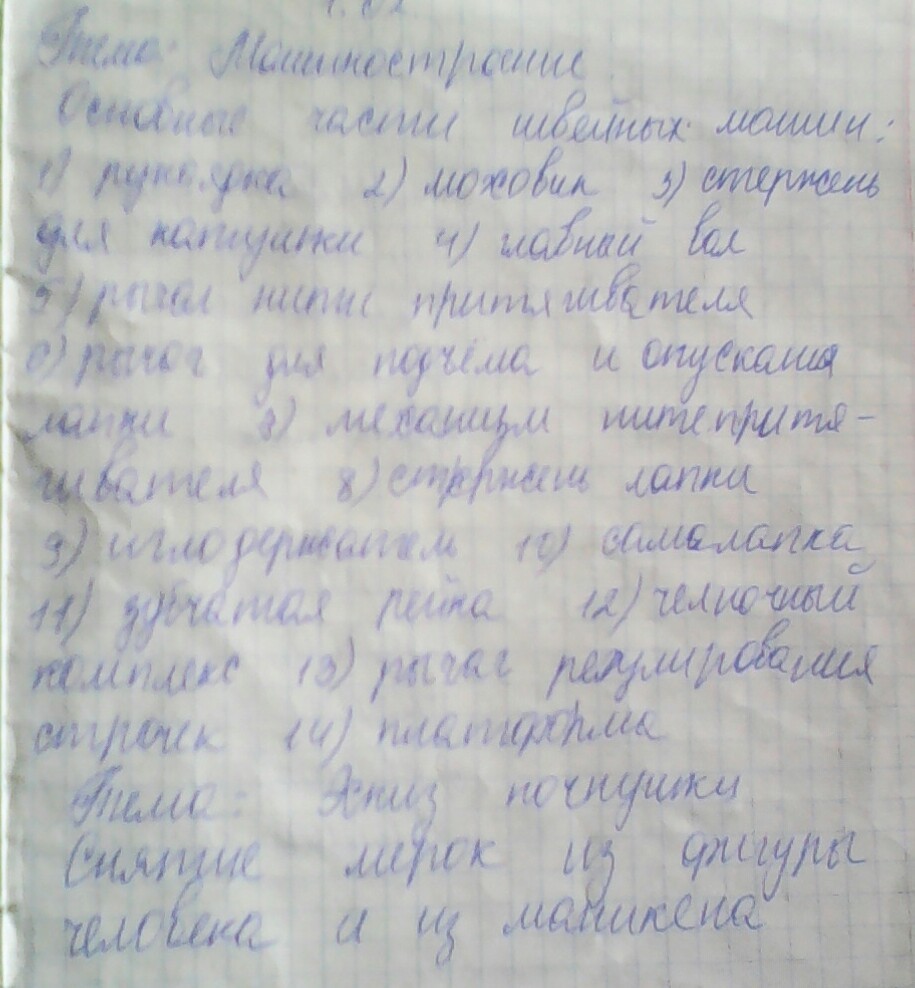 Тема: Машиностроение
Основные части швейных машин:
1) рукоядка 2) моховик 3) стержень
для катушки 4) главный вал
5) рычал нити притягивателя
6) рычаг для подъёма и опускания
лапки 7) механизм нитепритя-
гивателя 8) стержень лапки
9) иглодержатель 10) самалапка
11) зубчатая рейка 12) челночный
комплекс 13) рычаг регулирования
строчек 14) платформа
Тема: Эскиз
Снятие мерок из фигуры
человека и из маникена